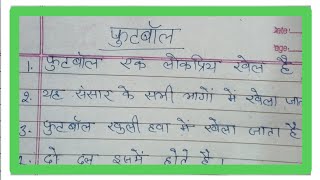 फुटबॉल
Date:
Page:
1. फुटबॉल एक लोकप्रिय खेल है
२. यह संसार के सभी भागों में खेला जा
3. फुटबॉल खुली हवा में खेला जाता है
दो दल इसमें होते है।